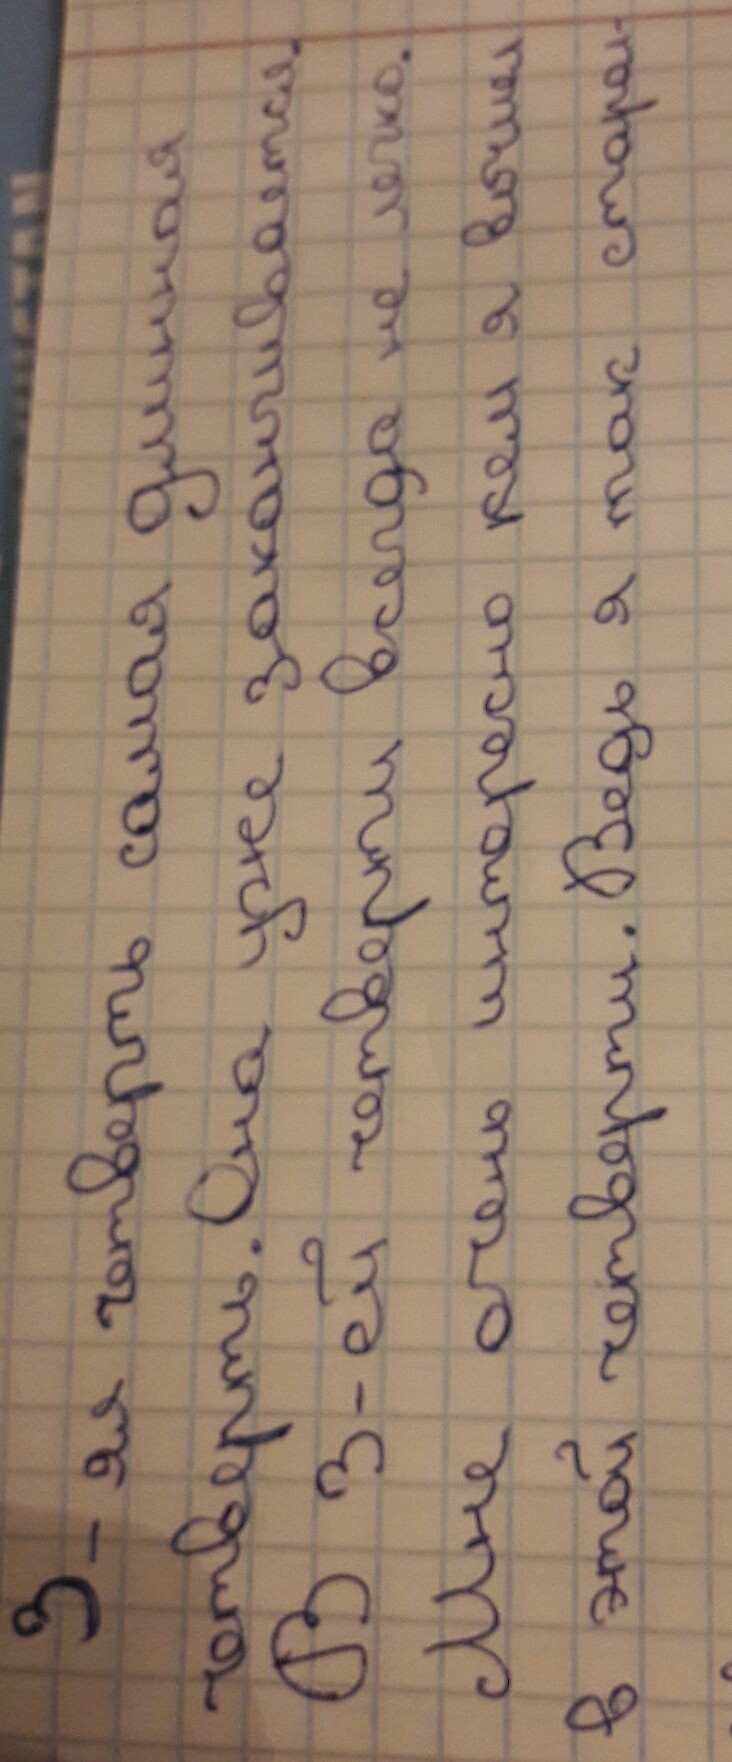 3-яя четверть самая длинная
четверть. Она уже заканчивается.
В 3-ей четверти всегда не легко.
Мне очень интересно кем я вочши
в этой четверти. Ведь я так стара-